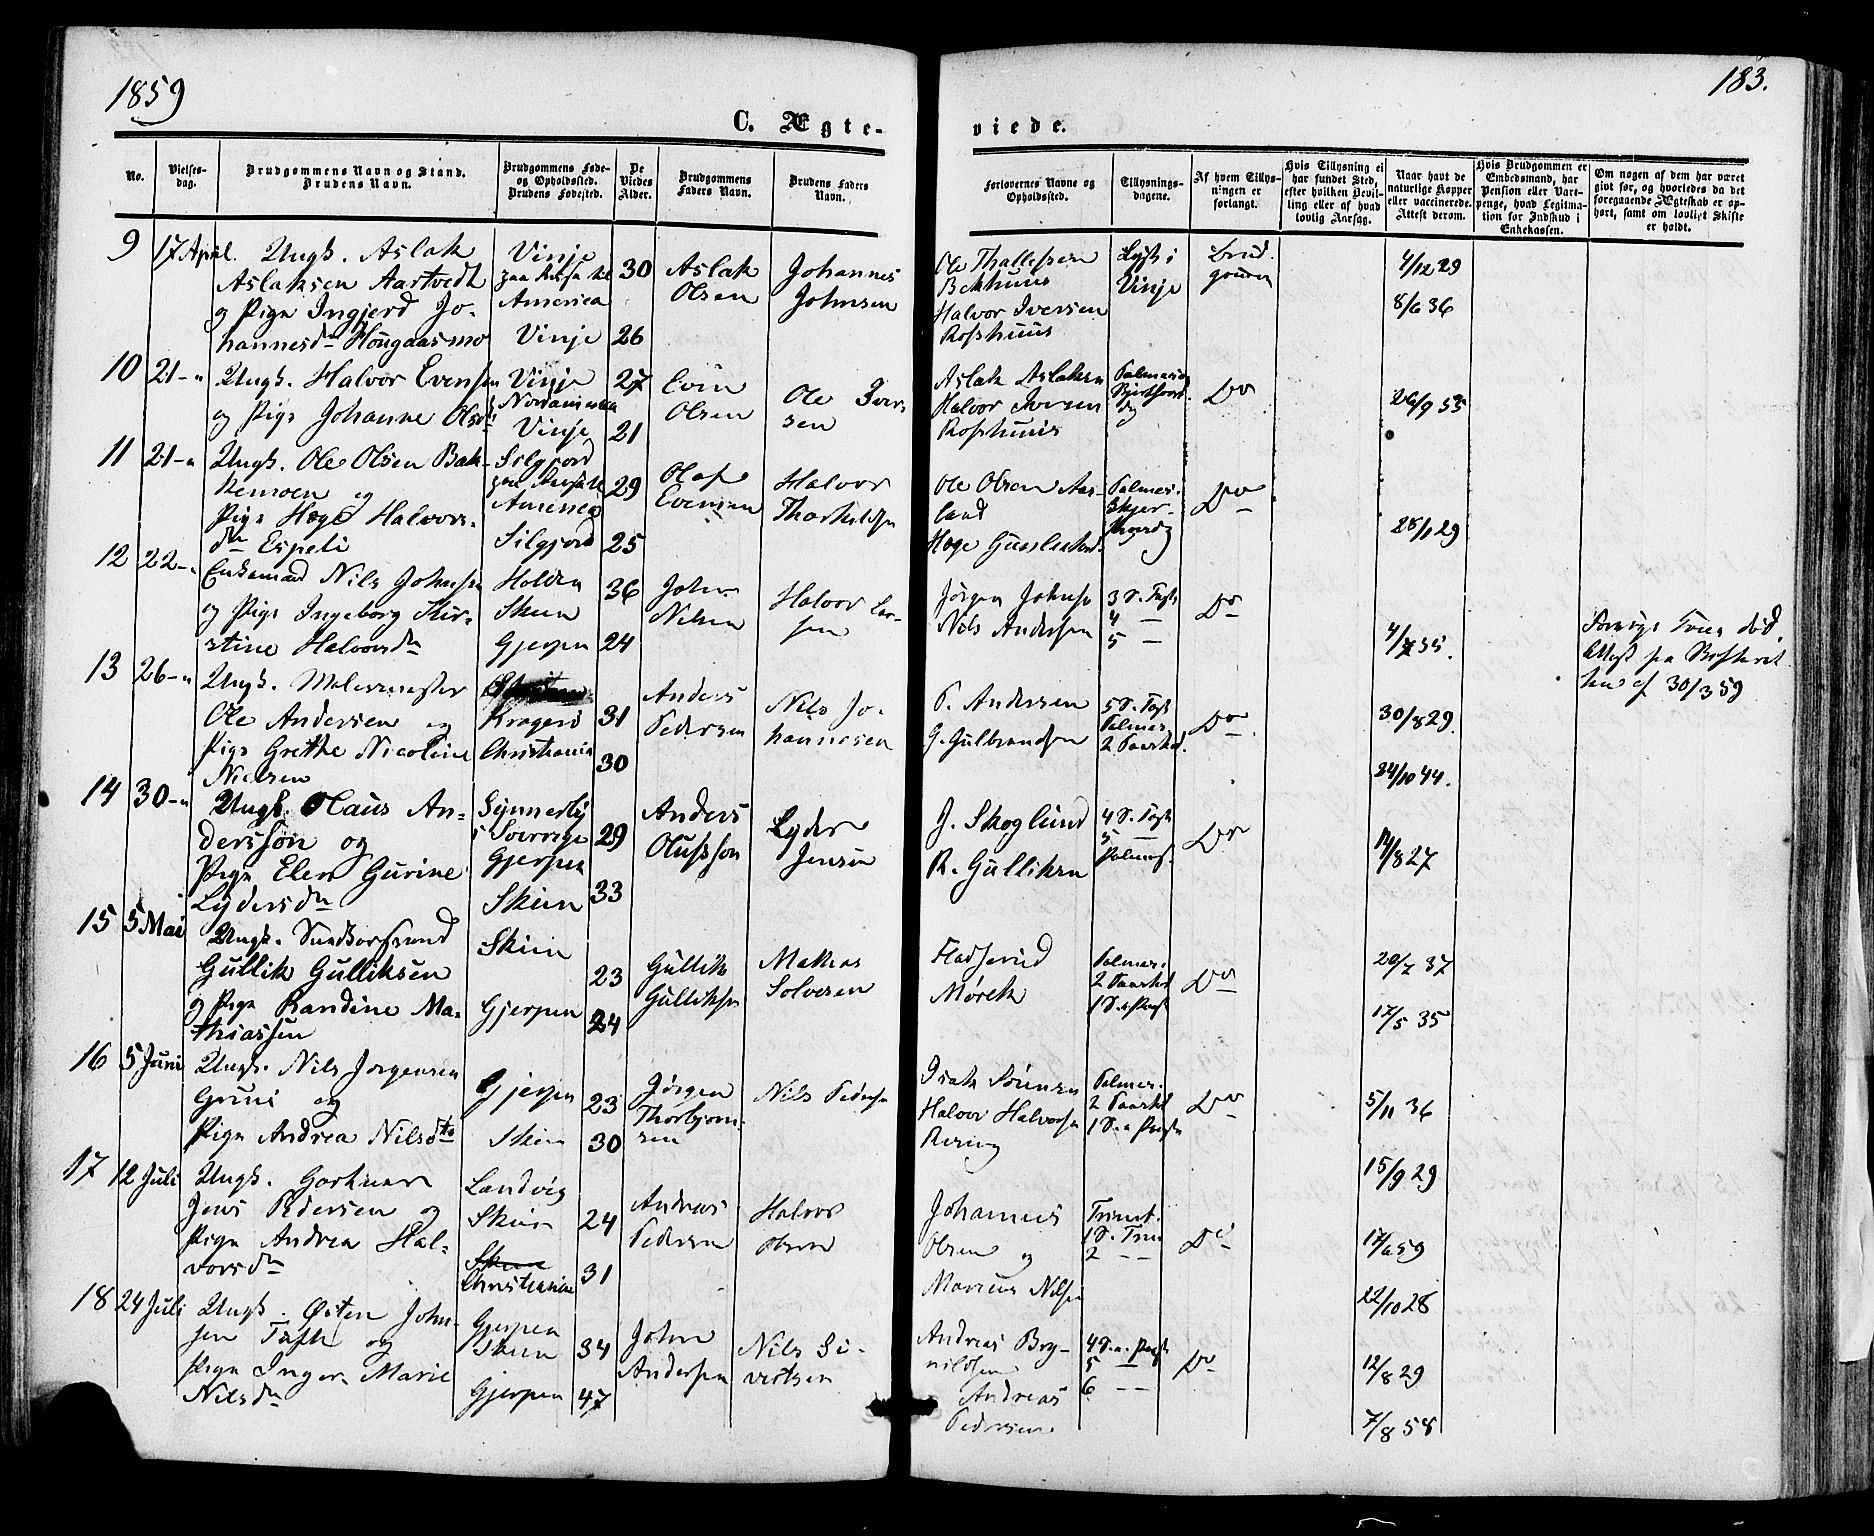 1859
183.
C. Ægte-
viede.
No.
Vielses-
dag.
Brudgommens Navn og Stand.
Brudens Navn.
Brudgommens Føde-
og Opholdssted.
Brudens Fødested.
De
Viedes
Alder.
Brudgommens
Faders Navn.
Brudens Faders
Navn.
Forlovernes Navne og
Opholdssted.
Tillysnings-
dagene.
Af hvem Tillys-
ningen er
forlangt.
Hvis Tillysning ei
har fundet Sted,
efter hvilken Bevil-
ling eller af hvad
lovlig Aarsag.
Naar havt de
naturlige Kopper
eller vaccinerede.
Attest derom.
Hvis Brudgommen er
Embedsmand, har
Pension eller Vart-
penge, hvad Legitima-
tion for Indskud i
Enkekassen.
Om nogen af dem har været
givt før, og hvorledes da det
foregaaende Ægteskab er op-
hørt, samt om lovligt Skifte
er holdt.
9 17 April. Ungk. Aslak
Aslaksen Aartvedt
og Pige Ingjerd Jo-
hannesdr Hougaasmo
Vinje
paa Reise til
America
Vinje
30
26
Aslak
Olsen
Johannes
Johnsen
Ole Thallefsen
Bekhuus
Halvor Iversen
Rofshuus
Lyst i
Vinje
Brud-
gommen
4/12 29
8/6 36
10 21-" Ungk. Halvor Evensen
og Pige Johanne Olsdr
Vinje
Nordamerika
Vinje
27
21
Evin
Olsen
Ole Iver-
sen
Aslak Aslaksen
Halvor Iversen
Rofshuus
Palmesøn
Do
26/9 53
11 21-" Ungk. Ole Olsen Bak-
kemoen og
Pige Hæge Halvors-
dr Espeli
Silgjord
paa Reise til
America
Silgjord
29
25
Olaf
Evensen
Halvor
Thorkildsen
Ole Olsen Aas-
land
Hæge
Palmes.
Skjer-
Do
28/1 29
12 22-" Enkemand Nils Johnsen
og Pige Ingeborg Kir-
stine Halvorsdr
Holden
Skien
Gjerpen
36
24
John
Nilsen
Halvor Lar-
sen
Jørgen Johnsen
Nils Andersen
3 S. Faste
4 —
5 —
Do
4/7 35.
30/3 59
13 26-" Ungk. Malermester
Ole Andersen og
Pige Grethe Nicoline
Nielsen
Kragerø
Christiania
31
30
Anders
Pedersen
Nils Jo-
hannesen
P. Andersen
G. Gulbrandsen
5 S. Fast
Palmes.
2 Paaskd.
Do
30/8 29.
24/10 44.
14 30-" Ungk. Olaus An-
dersson og
Pige Elen Gurine
Lydersdr
Synnerby
i Sverrige
Gjerpen
Skien
29
33
Anders
Olufsson
Lyder
Jensen
J. Skoglund
R. Gulliksen
4 S. Fast
5 —
Palmes.
Do
14/8 27
15 5 Mai Ungk.
Gullik Gulliksen
og Pige Randine Ma-
thiassen
Skien
Gjerpen
23
24
Gullik
Gulliksen
Mathias
Solvesen
Mørch
Palmes.
2 Paaskd
1 S. e Paask
Do
20/7 37
17/5 35
16 5 Juni Ungk. Nils Jørgensen
Grini og
Pige Andrea Nilsdtr
Gjerpen
Skien
23
30
Jørgen
Thorbjørn-
sen
Nils Pedersen
Isak Sørensen
Halvor Halvorsen
Rising
Palmes.
2 Paaskd
1 S. e Paaske
Do
5/11 36
15/9 29
17 12 Juli Ungk. Gartner
Jens Pedersen og
Pige Andrea Hal-
vorsdr
Landvig
Skien
Skien
Christiania
24
31
Andreas
Pedersen
Halvor
Olsen
Johannes
Olsen og
Marcus Nilsen
Trinit.
1 S. Trin
2 — —
Do
17/6 59
22/10 28
18 24 Juli Ungk. Østen John-
sen Tufte og
Pige Inger Marie
Nilsdr
Gjerpen
Skien
Gjerpen
34
47
John
Andersen
Nils Si-
vertsen
Andreas Bry-
nildsen
Andreas
Pedersen
4 S. e. Paask
5 — —
6 — —
Do
12/8 29
7/8 58